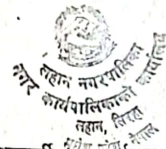 लहान नगरपालिका
नगर कार्यपालिकाको कार्यालय
लहान, सिरहा
नेपाल